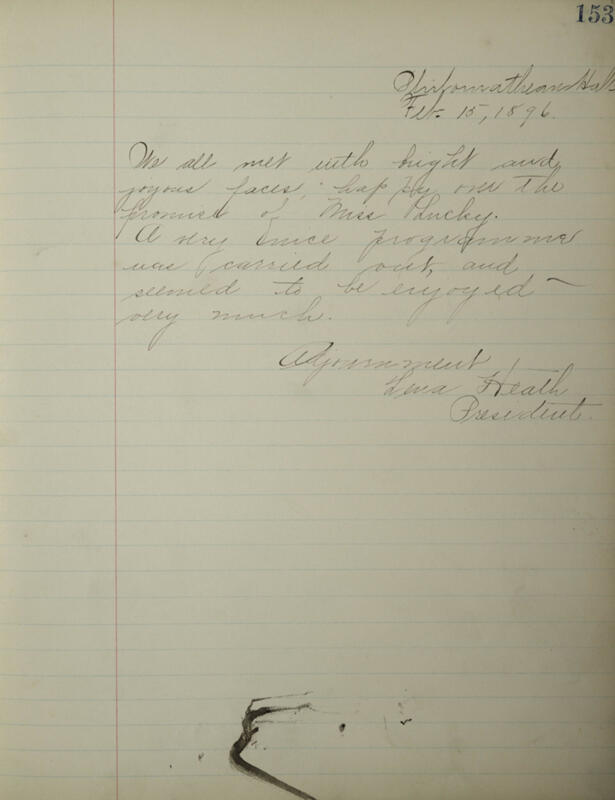 153
Hall
Feb. 15, 1896.
We all met with bright and
joyous faces, happy over the
promise of Miss Lucky.
A very nice programme
was carried out, and
seemed to be enjoyed
very much.
Adjournment
Heath
President.